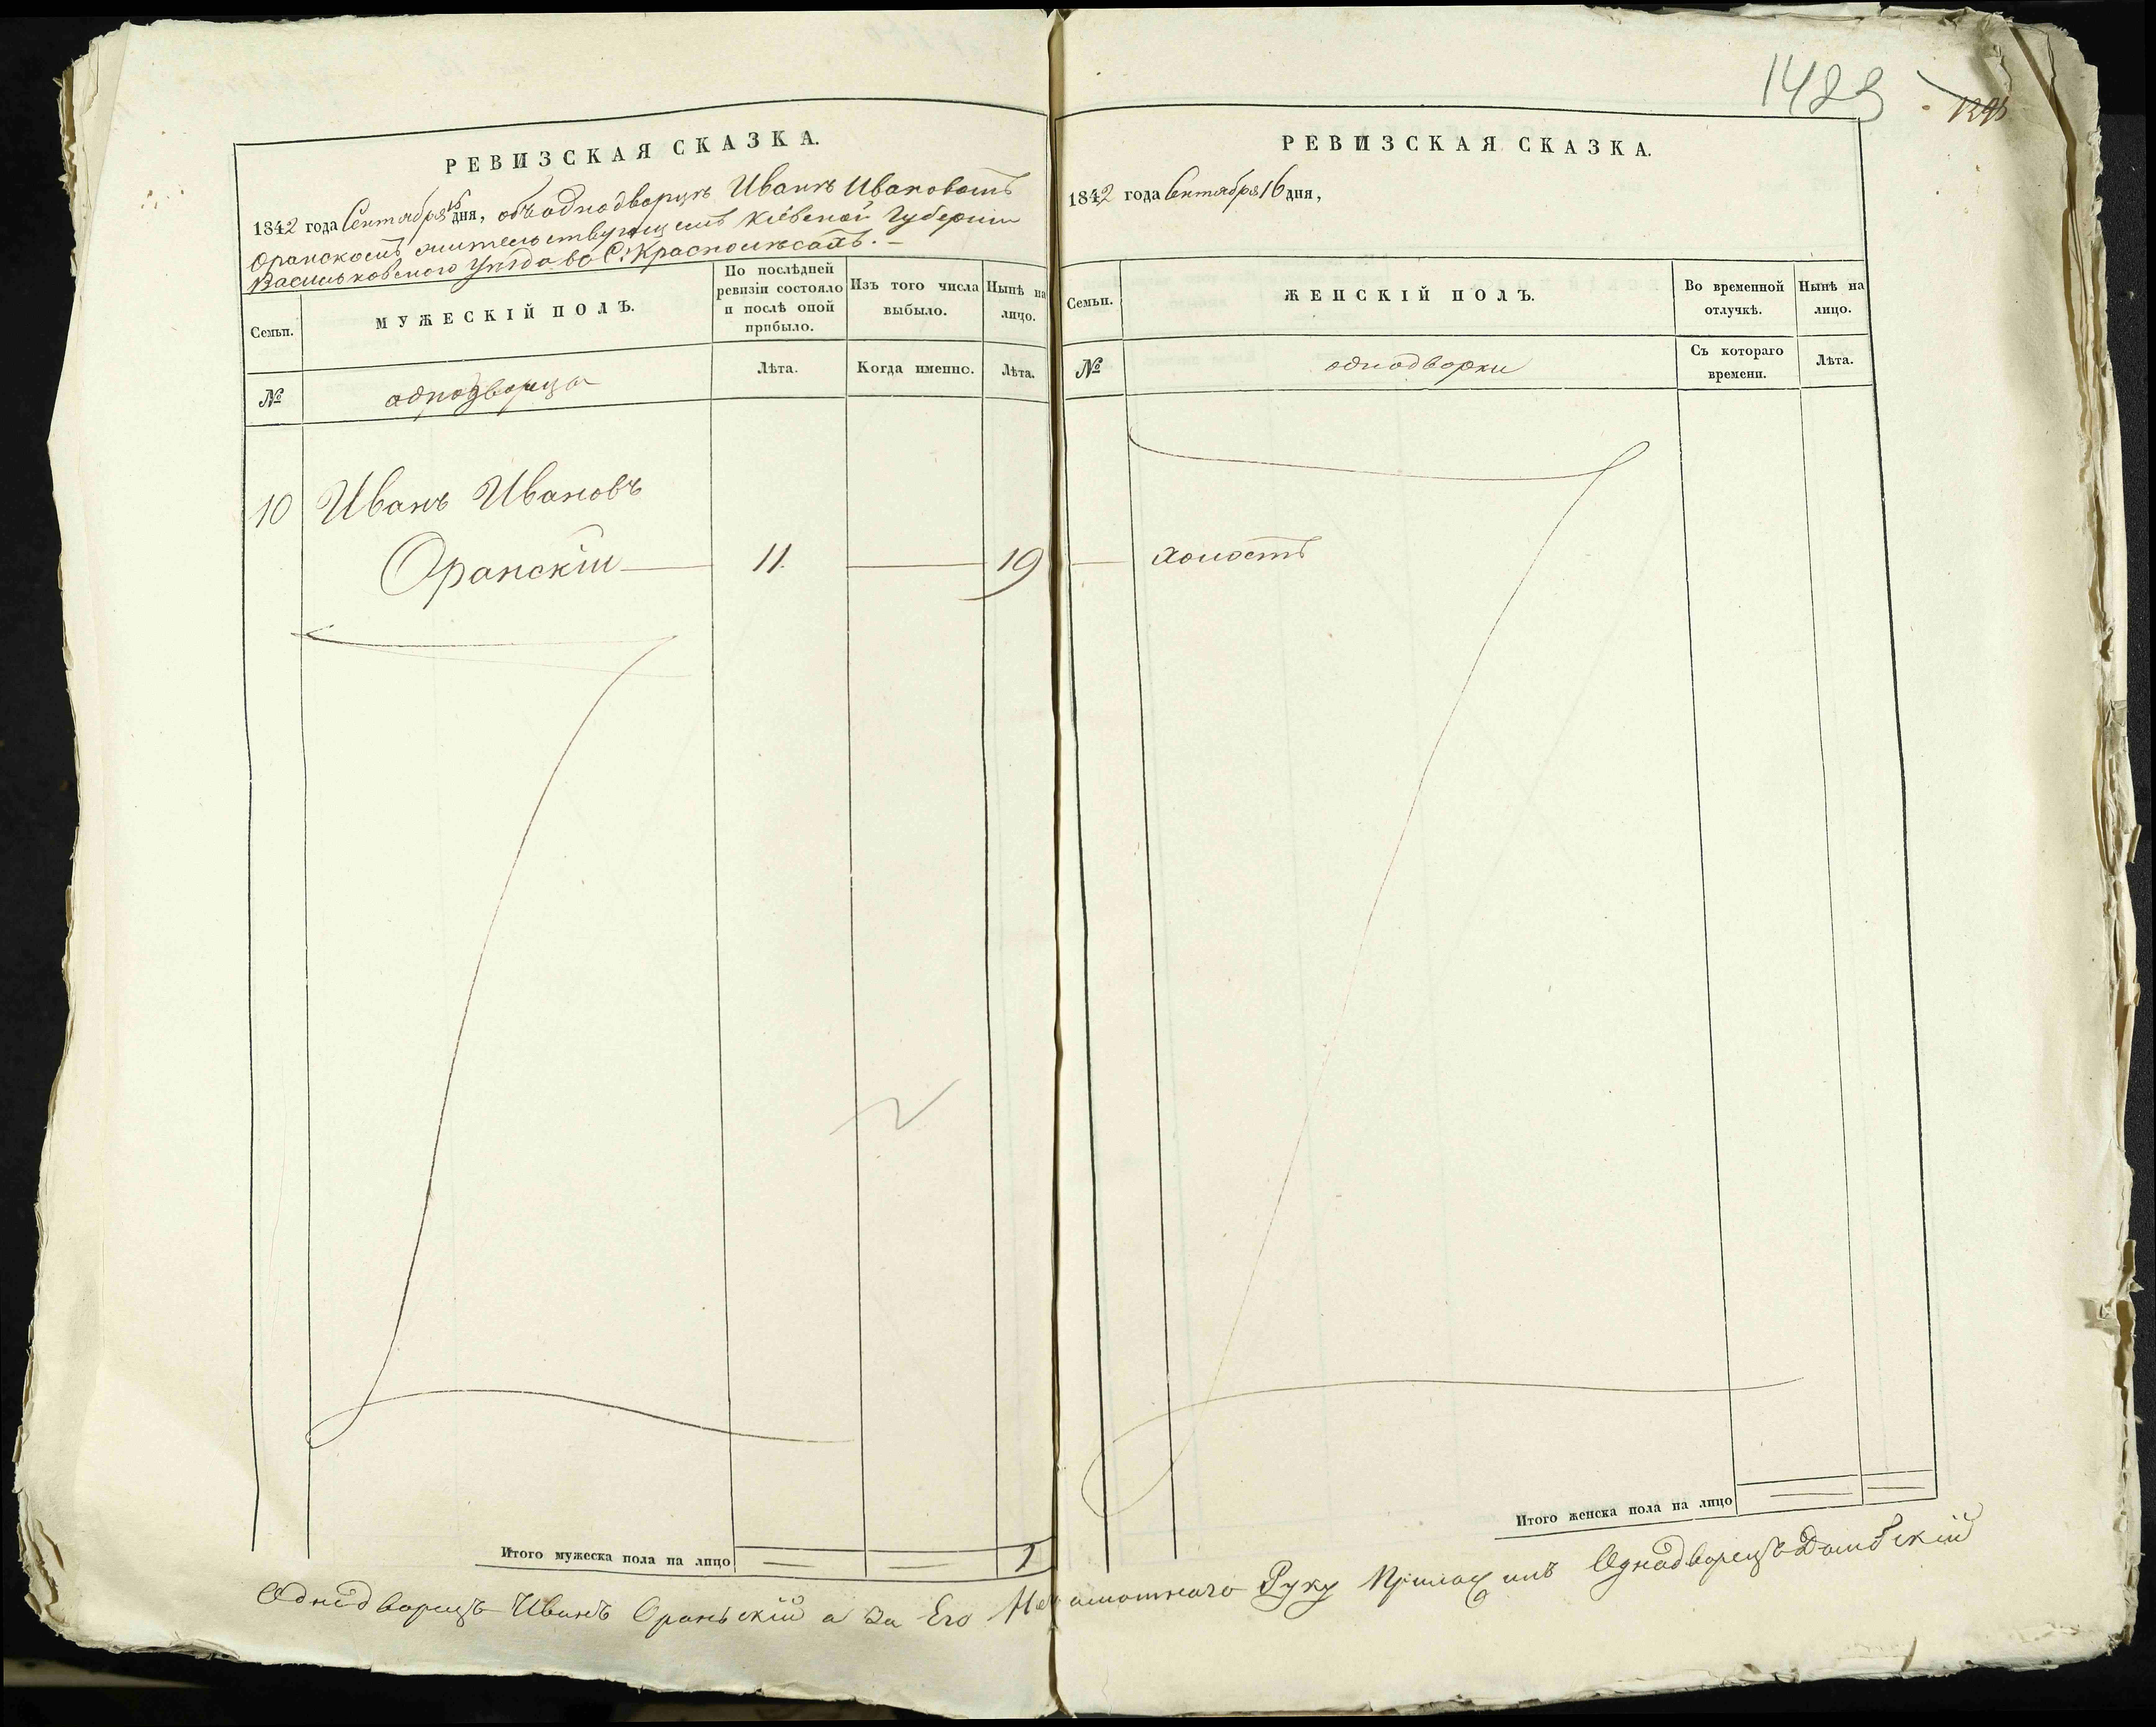 РЕВИЗСКАЯ СКАЗКА.
1842 года Сентября 16 дня, объ однодворцѣ Иванѣ Ивановомъ
Оранскомъ жительствующемъ Кіевской Губерніи
Васильковскаго Уѣзда въ С: Краснолѣсахъ. —
Семьи.
МУЖЕСКІЙ ПОЛЪ.
По послѣдней ревизіи состояло и послѣ оной прибыло.
Изъ того числа выбыло.
Нынѣ на лицо.
№
однодворцы
Лѣта.
Когда именно.
Лѣта.
10 Иванъ Ивановъ
Оранскій — 11. — 19
Итого мужеска пола на лицо 1
1483
РЕВИЗСКАЯ СКАЗКА.
1842 года Сентября 16 дня,
Семьи.
ЖЕНСКІЙ ПОЛЪ.
Во временной отлучкѣ.
Нынѣ на лицо.
№
однодворки
Съ котораго времени.
Лѣта.
— холостъ
Итого женска пола на лицо
Однодворецъ Иванъ Оранскій а За Его Неграмотнаго Руку Приложилъ Однодворецъ